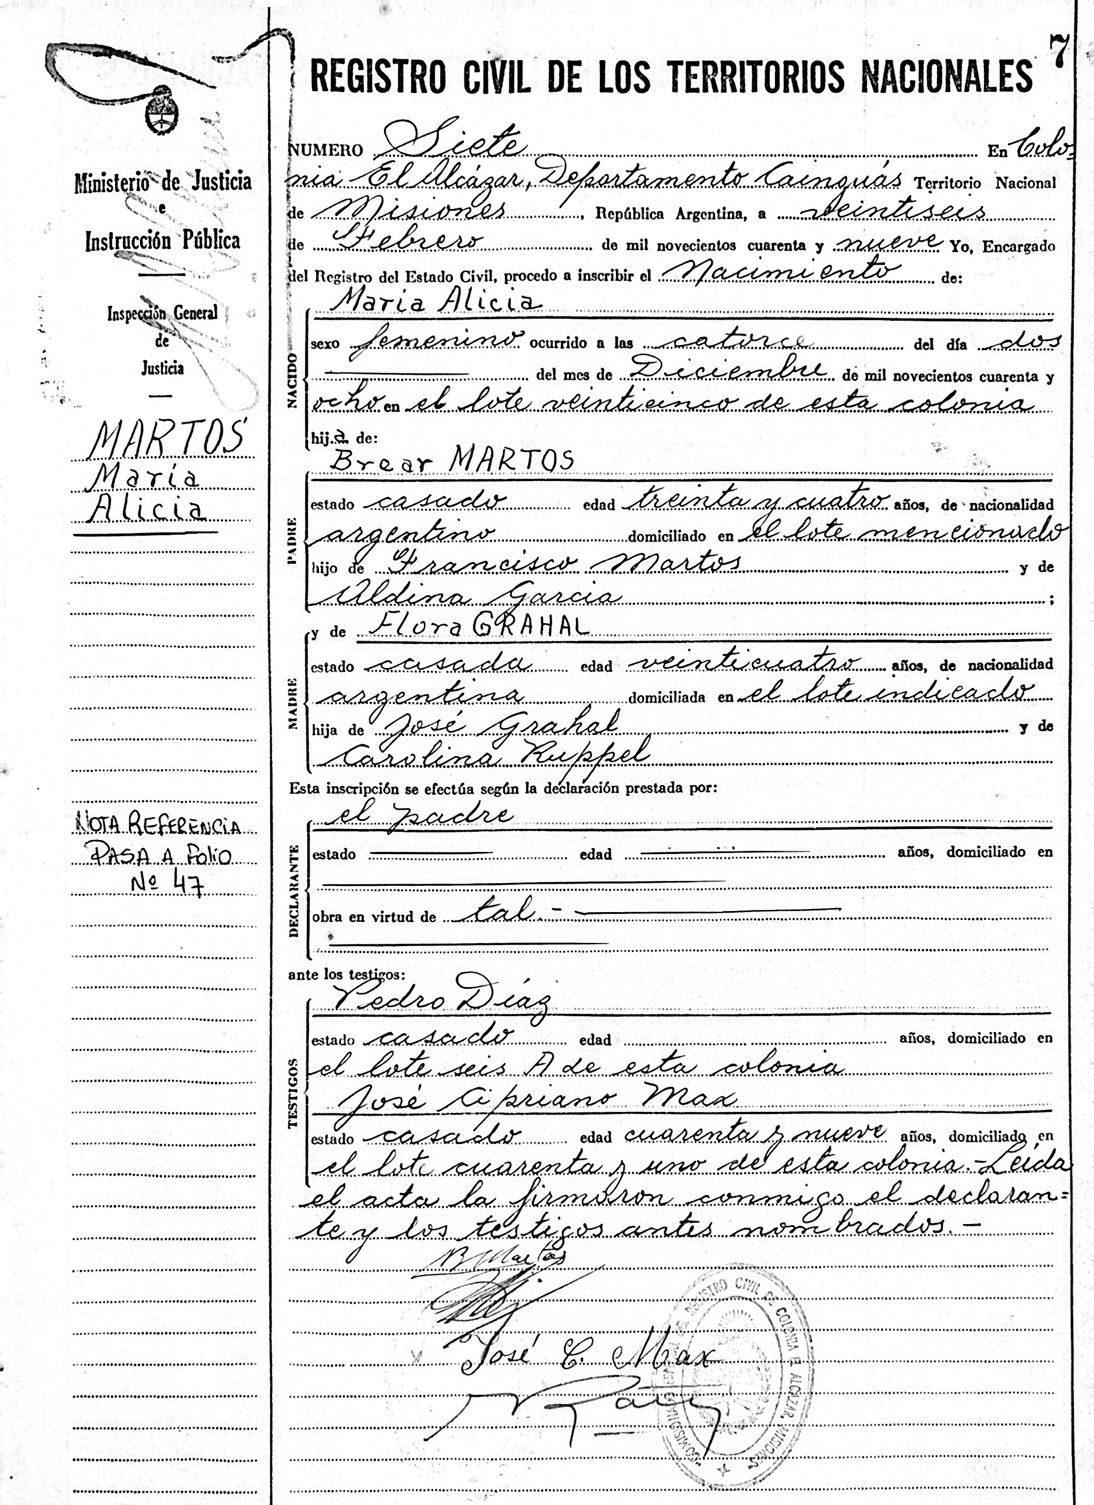 7
REGISTRO CIVIL DE LOS TERRITORIOS NACIONALES
Ministerio de Justicia
e
Instrucción Pública
Inspección General
de
Justicia
MARTOS
María
Alicia
NOTA REFERENCIA
PASA A FOLIO
Nº 47
NUMERO Siete En Colo=
nia El Alcázar, Departamento Cainguás Territorio Nacional
de Misiones, República Argentina, a veintiseis
de Febrero de mil novecientos cuarenta y nueve Yo, Encargado
del Registro del Estado Civil, procedo a inscribir el Nacimiento de:
NACIDO
María Alicia
sexo femenino ocurrido a las catorce del día dos
del mes de Diciembre de mil novecientos cuarenta y
ocho en el lote veinticinco de esta colonia
hija de:
PADRE
Brear MARTOS
estado casado edad treinta y cuatro años, de nacionalidad
argentino domiciliado en el lote mencionado
hijo de Francisco Martos y de
Aldina Garcia ;
MADRE
y de Flora GRAHAL
estado casada edad veinticuatro años, de nacionalidad
argentina domiciliada en el lote indicado
hija de José Grahal y de
Carolina Ruppel
Esta inscripción se efectúa según la declaración prestada por:
DECLARANTE
el padre
estado edad años, domiciliado en
obra en virtud de tal.-
ante los testigos:
TESTIGOS
Pedro Díaz
estado casado edad años, domiciliado en
el lote seis A de esta colonia
José Cipriano Max
estado casado edad cuarenta y nueve años, domiciliado en
el lote cuarenta y uno de esta colonia.- Leída
el acta la firmaron conmigo el declaran=
te y los testigos antes nombrados.-
B Martos
José C. Max
REGISTRO CIVIL DE COLONIA EL ALCAZAR, MISIONES